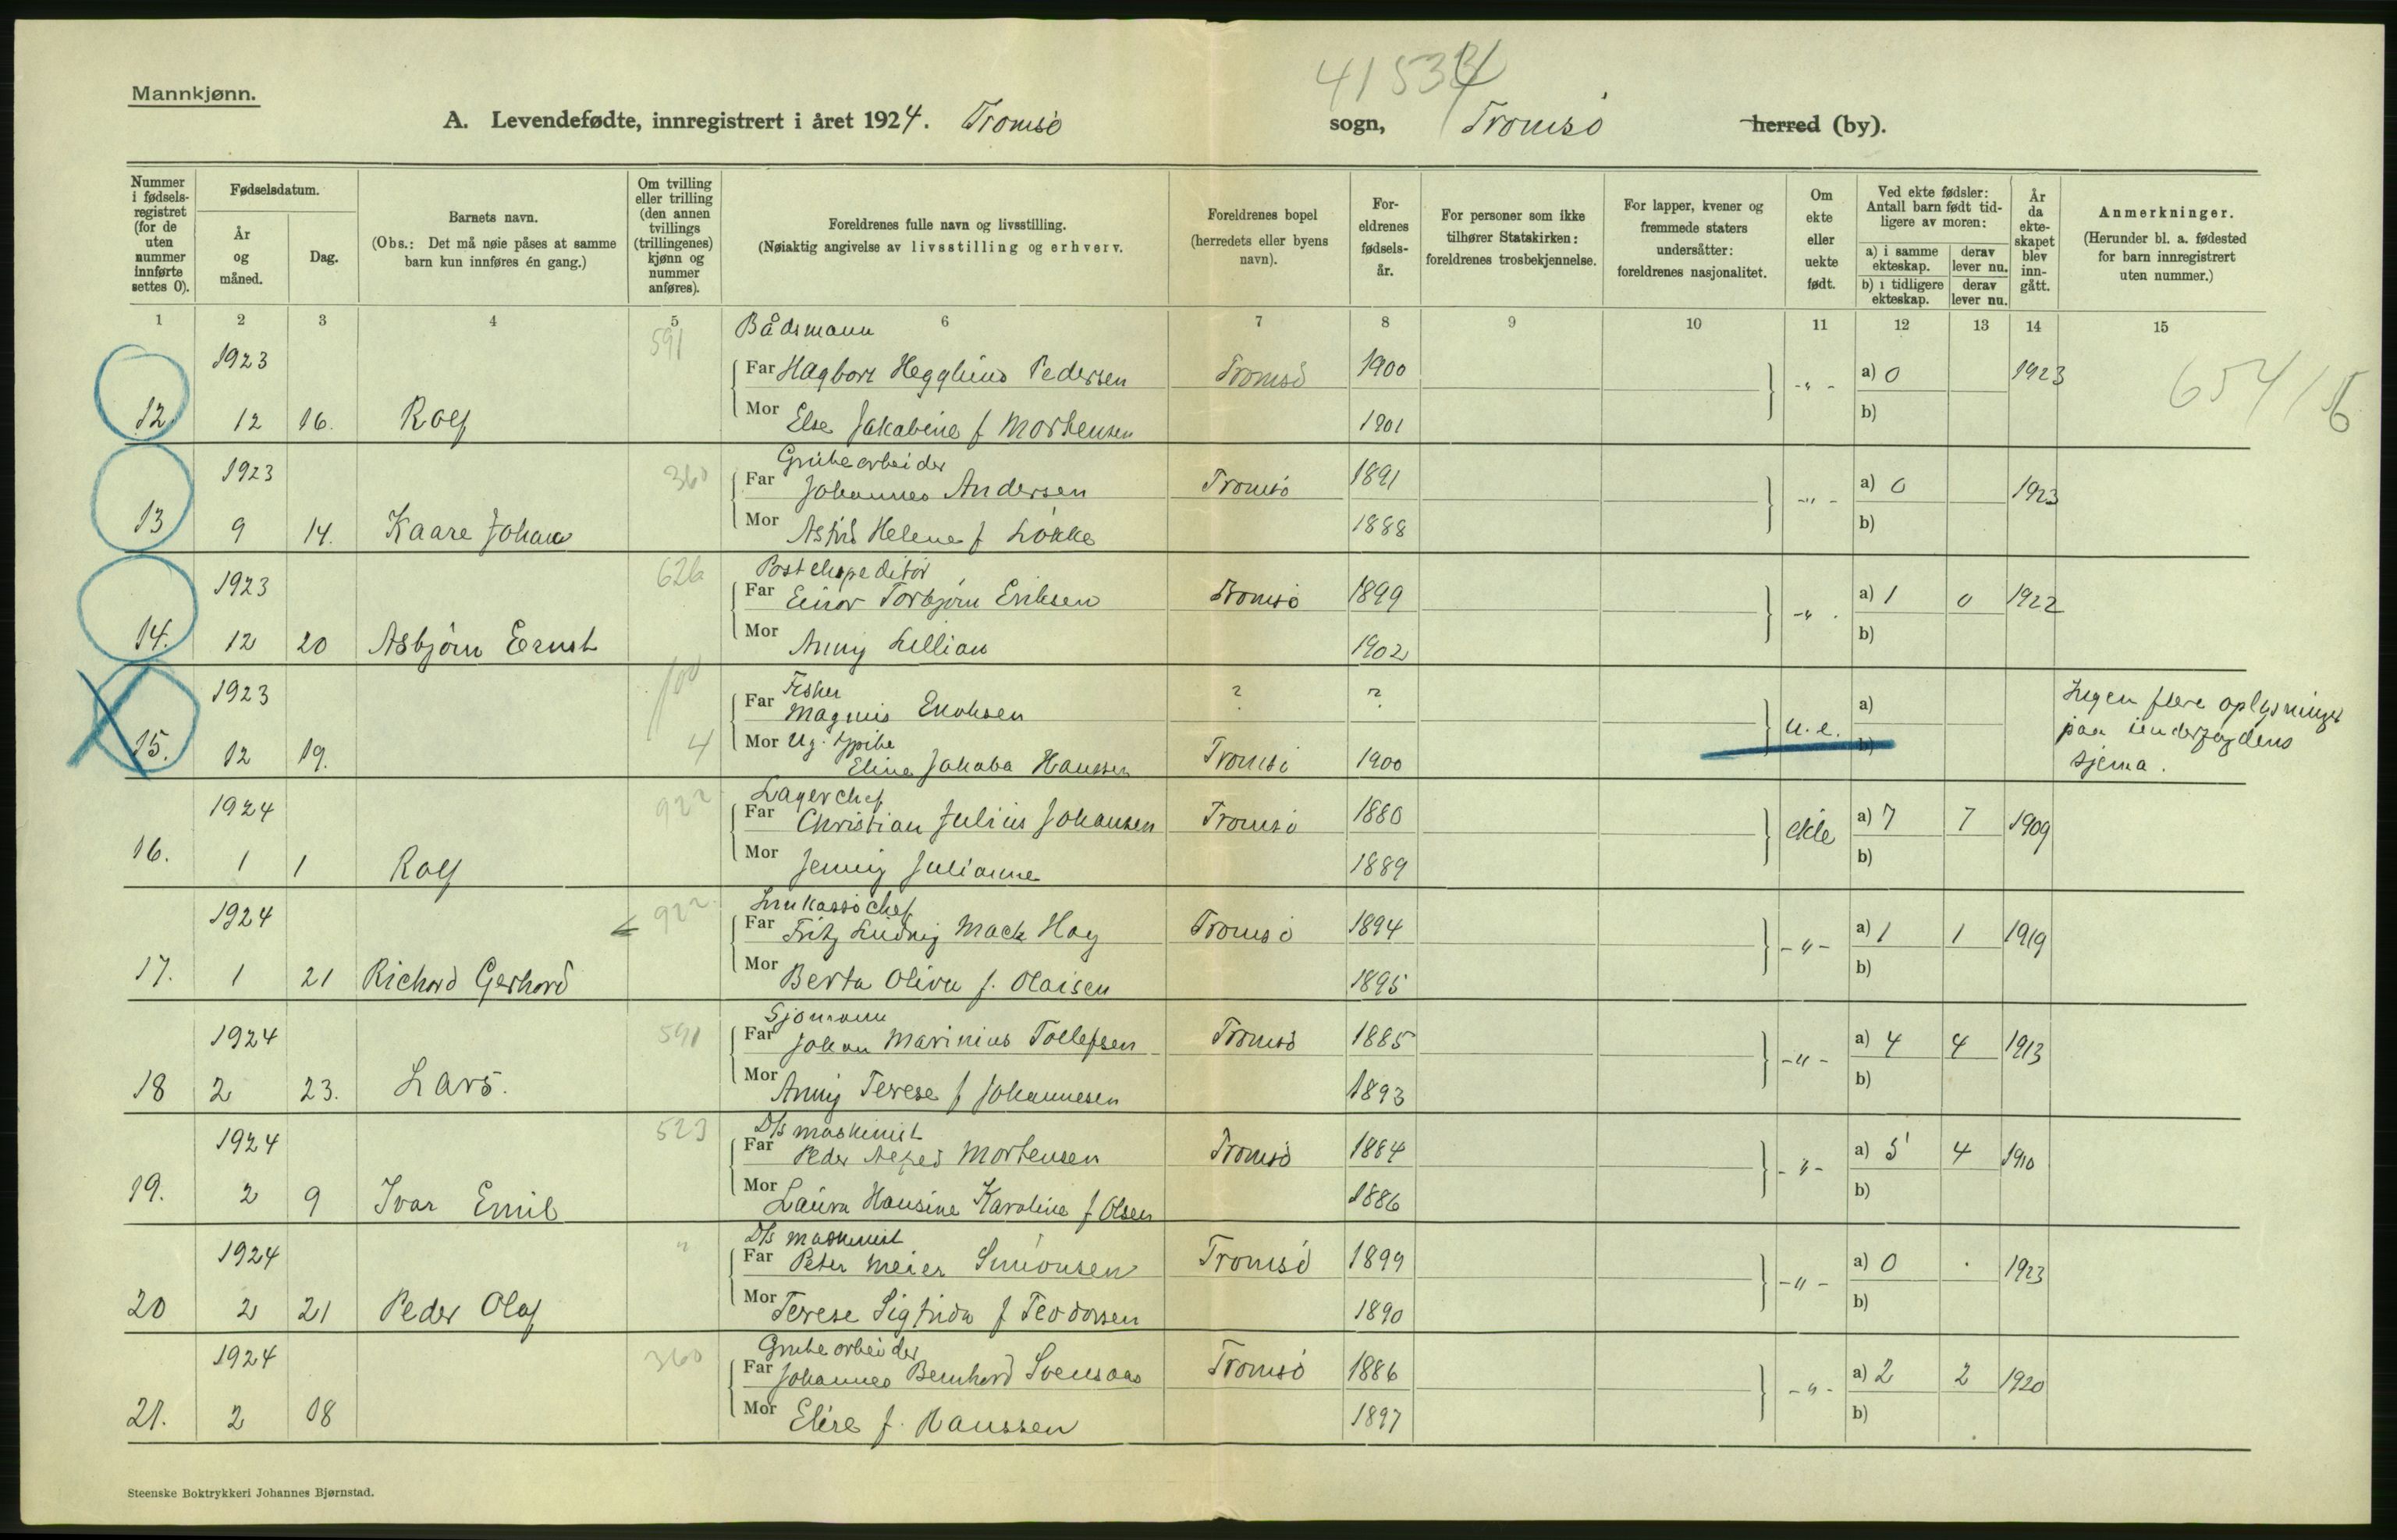 41534
Mannkjønn.
A. Levendefødte, innregistrert i året 1924. Tromsö sogn, Tromsö herred (by).
Nummer i fødsels-registret (for de uten nummer innførte settes 0).
Fødselsdatum.
År og måned.
Dag.
Barnets navn.
(Obs.: Det må nøie påses at samme barn kun innføres én gang.)
Om tvilling eller trilling (den annen tvillings (trillingenes) kjønn og nummer anføres).
Foreldrenes fulle navn og livsstilling.
(Nøiaktig angivelse av livsstilling og erhverv.
Foreldrenes bopel (herredets eller byens navn).
For-eldrenes fødsels-år.
For personer som ikke tilhører Statskirken: foreldrenes trosbekjennelse.
For lapper, kvener og fremmede staters undersåtter: foreldrenes nasjonalitet.
Om ekte eller uekte født.
Ved ekte fødsler: Antall barn født tid-ligere av moren:
a) i samme ekteskap.
derav lever nu.
b) i tidligere ekteskap.
derav lever nu.
År da ekte-skapet blev inn-gått.
Anmerkninger.
(Herunder bl. a. fødested for barn innregistrert uten nummer.)
1 2 3 4 5 6 7 8 9 10 11 12 13 14 15
Bådsmann
1923 591 Far Hagbart Hegglund Pedersen Tromsö 1900 -"- a) 0 1923
12 12 16. Rolf Mor Else Jakobine f Mortensen 1901 b)
Grubearbeider
1923 360 Far Johannes Andersen Tromsö 1891 -"- a) 0 1923
13 9 14. Kaare Johan Mor Astrid Helene f Lökke 1888 b)
Postekspeditör
1923 626 Far Einar Torbjörn Eriksen Tromsö 1899 -"- a) 1 0 1922
14. 12 20 Asbjörn Ernst Mor Anny Lillian 1902 b)
Fisker
1923 100 Far Magnus Enoksen ? ? u.e. a)
15. 12 19. 4 Mor Ug. Elina Jakoba Hanssen Tromsö 1900 b)
Ingen flere oplysninger
paa
sjema.
Lagerchef
1924 922 Far Christian Julius Johansen Tromsö 1880 ekte a) 7 7 1909
16. 1 1 Rolf Mor Jenny Julianne 1889 b)
Innkassochef
1924 922 Far Fritz Ludvig Mack Hay Tromsö 1894 -"- a) 1 1 1919
17. 1 21 Richard Gerhard Mor Berta Oliva f. Olaisen 1895 b)
Sjömann
1924 591 Far Johan Marinius Tollefsen Tromsö 1885 -"- a) 4 4 1913
18 2 23. Lars. Mor Anny Terese f Johannesen 1893 b)
D/s maskinist
1924 523 Far Peder Alfred Mortensen Tromsö 1884 -"- a) 5 4 1910
19. 2 9 Ivar Emil Mor Laura Hansine Karoline f Olsen 1886 b)
D/s maskinist
1924 " Far Peter Meier Simonsen Tromsö 1899 -"- a) 0 . 1923
20 2 21 Peder Olaf Mor Terese Sigfrida f Teodorsen 1890 b)
Grubearbeider
1924 360 Far Johannes Bernhard Svensaas Tromsö 1886 -"- a) 2 2 1920
21. 2 18 Mor Elise f. Hanssen 1897 b)
Steenske Boktrykkeri Johannes Bjørnstad.